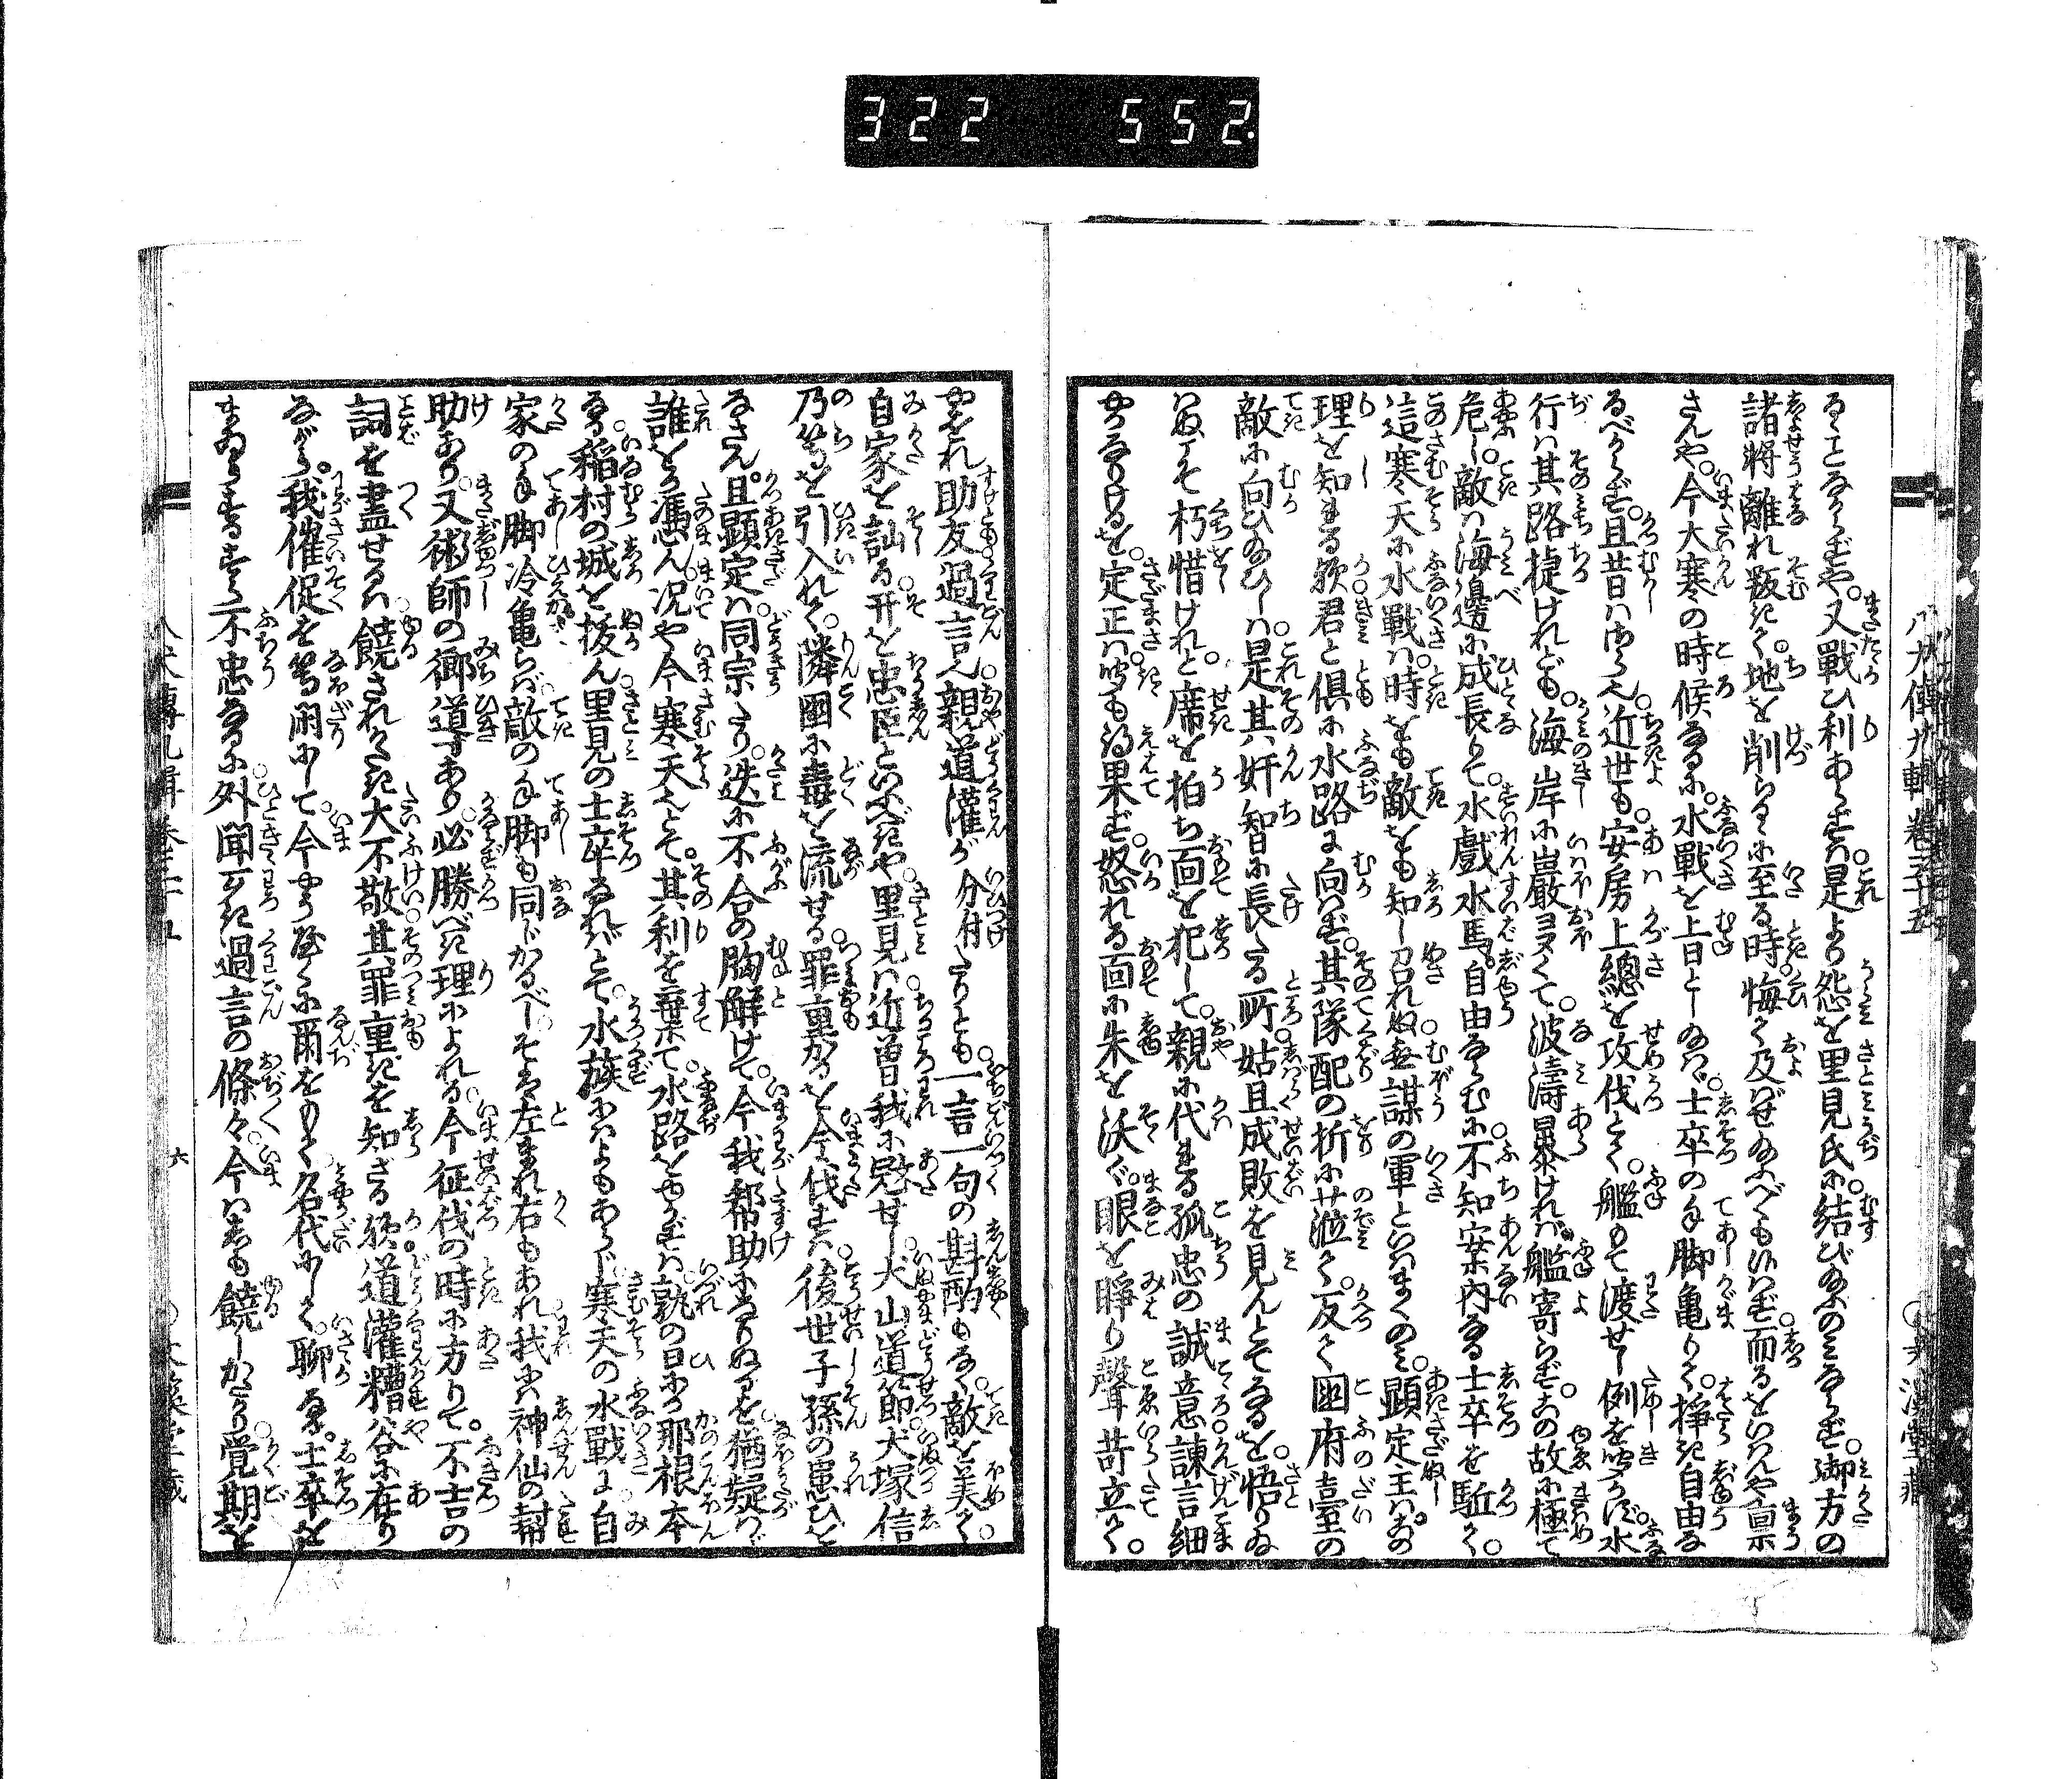 322 552
八犬傳九輯卷三十五
るゝとならずや。又戰ひ利あらずは。是より怨を里見氏に。結び給ふのみならず。御方の
諸將離れ叛きて。地を削らるゝに至る時。悔て及ばせ給ふべくも侍はず。而るをいはんや眞
さんや。今大寒の時候なるに。水戰を上日とし給はゞ。士卒の手脚亀りて。挊き自由な
るべからず。且昔はさら也。近世も。安房上總を攻伐とて。艦もて渡せし例を聞かず。水
行は其路捷けれども。海岸に巖多くて。波濤暴ければ。艦寄らず。この故に極て
危し。敵は海邊に成長りて。水戲水馬。自由ならむに。不知案內なる士卒を駈て。
這寒天に水戰は。時をも敵をも知し召れぬ。無謀の軍といはまくのみ。顯定王は。この
理を知れる欤。君と俱に水路に向はず。其隊配の折に莅て。反て國府臺の
敵に向ひ給ひしは。是其奸智に長たる所。姑且成敗を見んとてなるを。悟り給
はぬこそ朽惜けれと。席を拍ち面を犯して。親に代れる孤忠の誠意諫言細
やかなりけるを。定正は聞も得果ず。怒れる面に朱を沃ぎ。眼を睜り聲苛立て。
やをれ助友過言也。親道灌が分付なりとも。一言一句の斟酌もなく。敵を美て。
自家を訕る。开を忠臣といふべきや。里見は。近曾我に寇せし。犬山道節。犬塚信
乃等を引入れて。隣國に毒を流せる。罪重かるを今伐ずは。後世子孫の患ひを
なさん。且顯定は。同宗たり。迭に不合の胸解けて。今我幇助になりぬるを。猶疑はゞ
誰をか憑ん。况や今寒天也とて。其利を棄て。水路をゆかずは。孰の日にか那根本
なる。稻村の城を拔ん。里見の士卒なればとて。水族にはよもあらじ。寒天の水戰に。自
家の手脚冷亀らば。敵の手脚も同じかるべし。そは左まれ右もあれ。我には神仙の幇
助あり。又術師の鄕導あり。必勝べき理によれる。今征伐の時に方りて。不吉の
詞を盡せるは。饒されがたき大不敬。其罪重きを知ざる欤。道灌糟谷に在り
ながら。我催促を等閑にして。今やうやくに爾をもて。名代にして。聊なる。士卒を
まゐらするすら不忠なるに。外聞不可き過言の條々。今はしも饒しがたかり。覺期を
八犬傳九輯 卷三十五
六